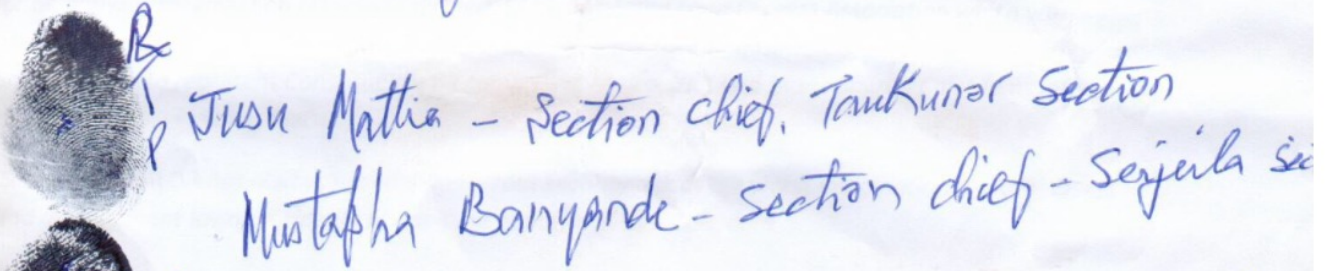 R
T
P
Jusu Mattia - Section chief. TauKunor Section
Mustapha Banyande - Section chief - Senjeila sec